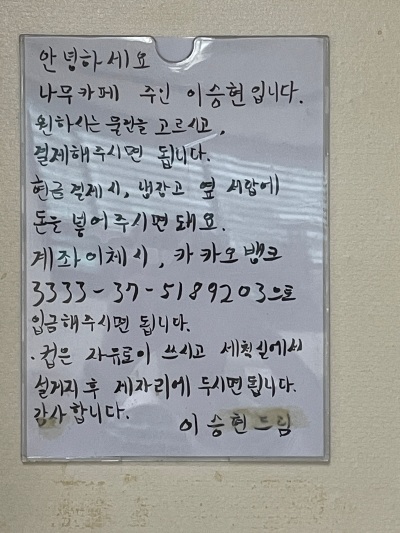 안녕하세요
나무카페 주인 이승현입니다.
원하시는 물만을 고르시고,
결제해주시면 됩니다.
현금결제시, 냉장고 옆 서랍에
돈을 넣어주시면 돼요.
계좌이체시, 카카오뱅크
3333-37-5189203으로
입금해주시면 됩니다.
·컵은 자유로이 쓰시고 세척실에서
설거지 후 제자리에 두시면 됩니다.
감사합니다.
이승현드림